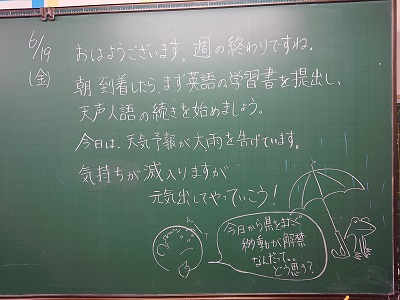 6/19
(金)
おはようございます。週の終わりですね。
朝 到着したら、まず英語の学習書を提出し、
天声人語の続きを始めましょう。
今日は、天気予報が大雨を告げています。
気持ちが滅入りますが
元気出してやっていこう!
今日から県をまたぐ
移動が解禁
なんだって‥
どう思う?